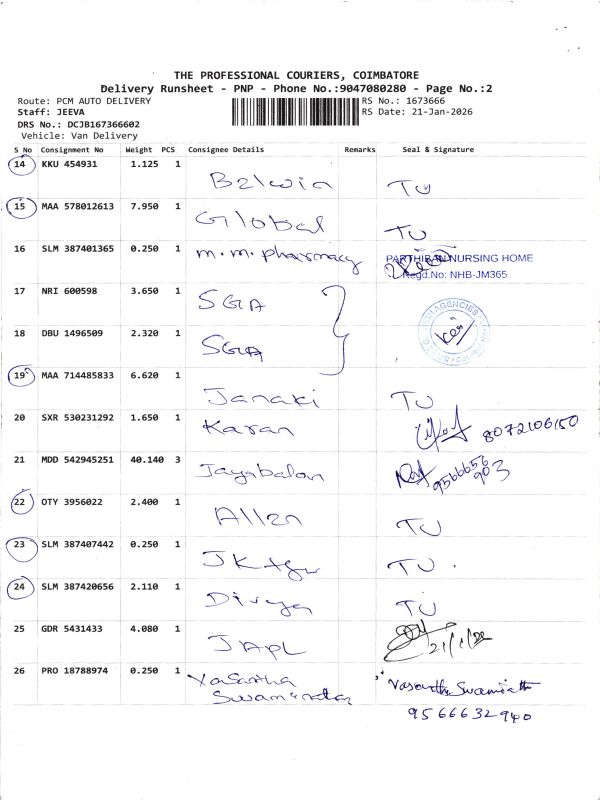 THE PROFESSIONAL COURIERS, COIMBATORE
Delivery Runsheet - PNP - Phone No.:9047080280 - Page No.:2
Route: PCM AUTO DELIVERY RS No.: 1673666
Staff: JEEVA RS Date: 21-Jan-2026
DRS No.: DCJB167366602
Vehicle: Van Delivery
S No Consignment No Weight PCS Consignee Details Remarks Seal & Signature
14 KKU 454931 1.125 1 Belwin TU
15 MAA 578012613 7.950 1 Global TU
16 SLM 387401365 0.250 1 m.m. pharmacy PARTHIBAN NURSING HOME
Regd.No: NHB-JM365
17 NRI 600598 3.650 1 SGA
18 DBU 1496509 2.320 1 SGA
19 MAA 714485833 6.620 1 Janaki TU
20 SXR 530231292 1.650 1 Karan 8072106150
21 MDD 542945251 40.140 3 Jayabalan 9566656
903
22 OTY 3956022 2.400 1 Allen TU
23 SLM 387407442 0.250 1 JK TU
24 SLM 387420656 2.110 1 Divya TU
25 GDR 5431433 4.080 1 JAPL
26 PRO 18788974 0.250 1 Vasantha
Swaminathan Vasantha Swaminathan
9566632940